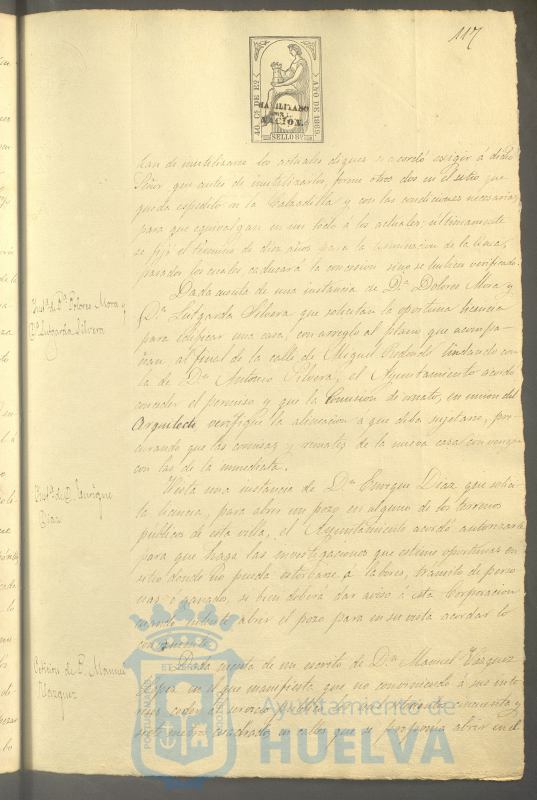 117
40 Cs DE Eo
AÑO DE 1869
HABILITADO
POR LA
NACION.
SELLO 8o
han de inutilizarse los actuales diques se acordó exigir á dicho
Señor que antes de inutilizarlos, forme otros dos en el sitio que
queda espedito en la Calzadilla y con las condiciones necesarias
para que equivalgan en un todo á los actuales; últimamente
se fijó el término de diez años para la terminacion de la linea,
pasados los cuales caducará la concesion sino se hubiese verificado.
Inst.a de D.a Dolores Mora y
D.a Lutgarda Silvera
Dada cuenta de una instancia de D.a Dolores Mora y
D.a Lutgarda Silvera que solicitan la oportuna licencia
para edificar una casa, con arreglo al plano que acompa-
ñan, al final de la calle de Miguel Redondo lindando con
la de D.n Antonio Silvera, el Ayuntamiento acordó
conceder el permiso y que la Comision de ornato, en union del
Arquitecto verifique la alineacion a que deba sujetarse, pro-
curando que las cornisas y remates de la nueva casa convengan
con las de la inmediata.
Inst.a de D. Enrique
Diaz
Vista una instancia de D.n Enrique Diaz que solici-
ta licencia, para abrir un pozo en alguno de los terrenos
públicos de esta villa, el Ayuntamiento acordó autorizarle
para que haga las investigaciones que estime oportunas en
sitio donde no pueda estorbarse á labores, tránsito de perso-
nas ó ganado, si bien deberá dar aviso á esta Corporacion
cuando intente abrir el pozo para en su vista acordar lo
conveniente.
Peticion de D. Manuel
Vazquez
Dada cuenta de un escrito de D.n Manuel Vazquez
Lopez en el que manifiesta que no conviniendo á sus inte-
reses ceder al servicio público los cincuenta y
siete metros cuadrados en calles que se proponia abrir en el
PORTUS MARIS
ET TERRE
CUSTODIA
Ayuntamiento de
HUELVA